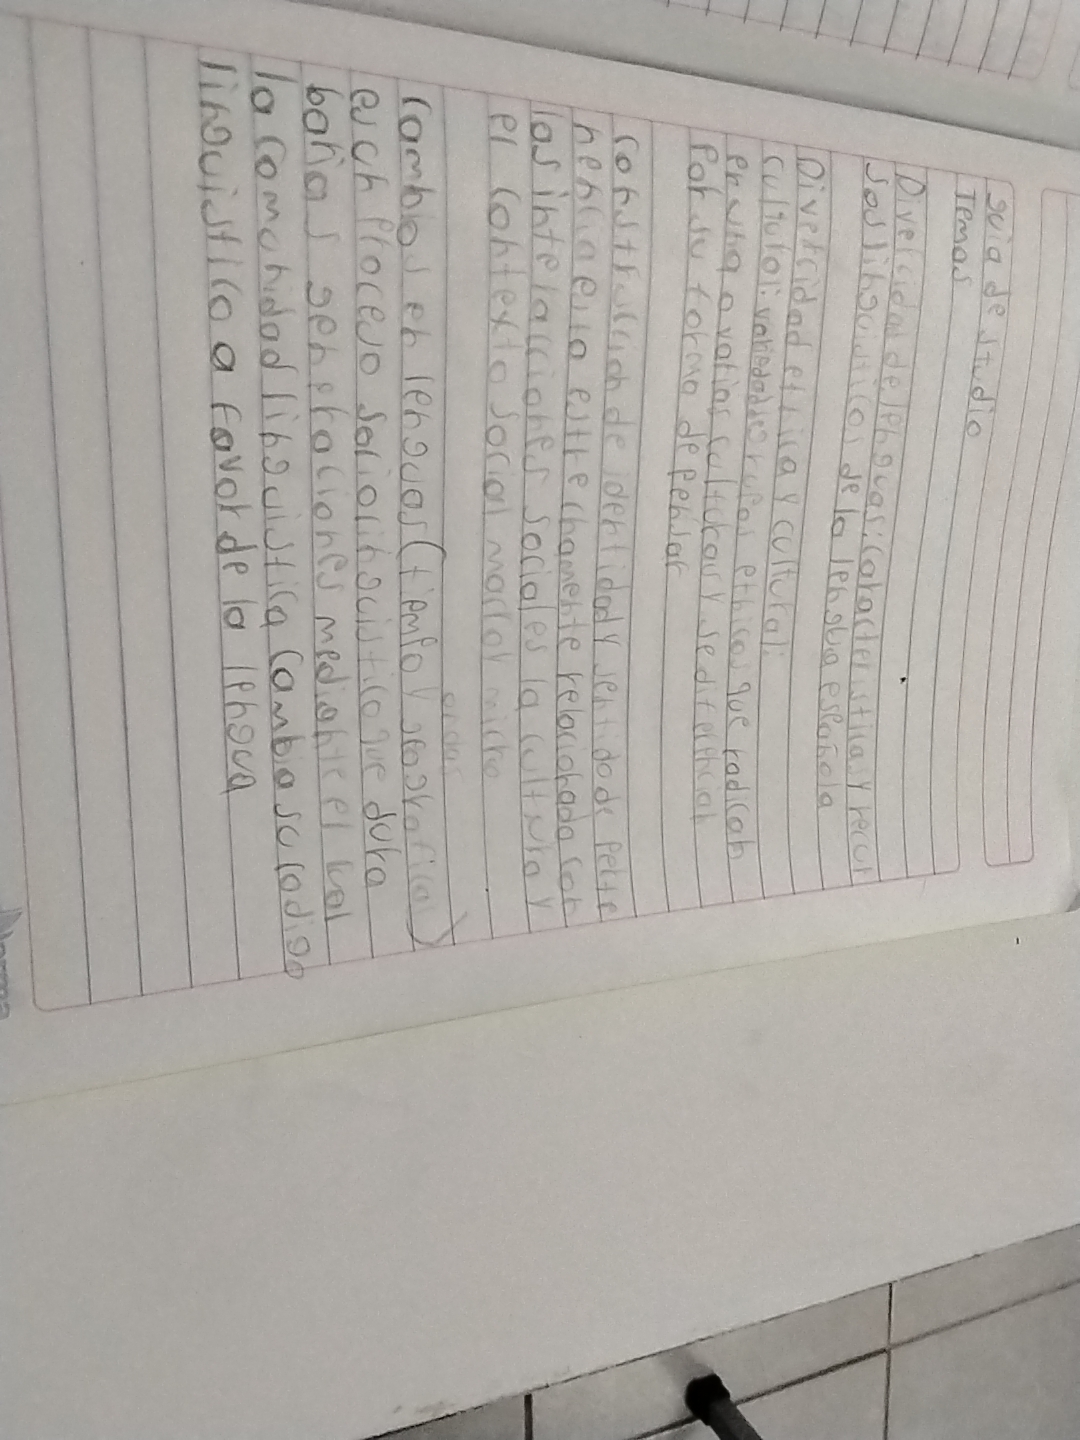 guia de studio
Temas
Divercidad de lenguas: caracteristicas y recur
sos linguisticos de la lengua española
Divercidad etnica y cultural:
cultural: variedad de grupos etnicos que radican
en una o varias culturas y se diferencian
por su forma de pensar
construccion de identidad y sentido de perte
nencia esta estrechamente relacionada con
las interacciones sociales la cultura y
el contexto social macro y micro
ondas
cambios en lenguas (tiempo y geograficas)
es un proceso sociolinguistico que dura
barias generaciones mediante el kual
la comunidad linguistica cambia su codigo
linguistico a favor de la lengua
Norma